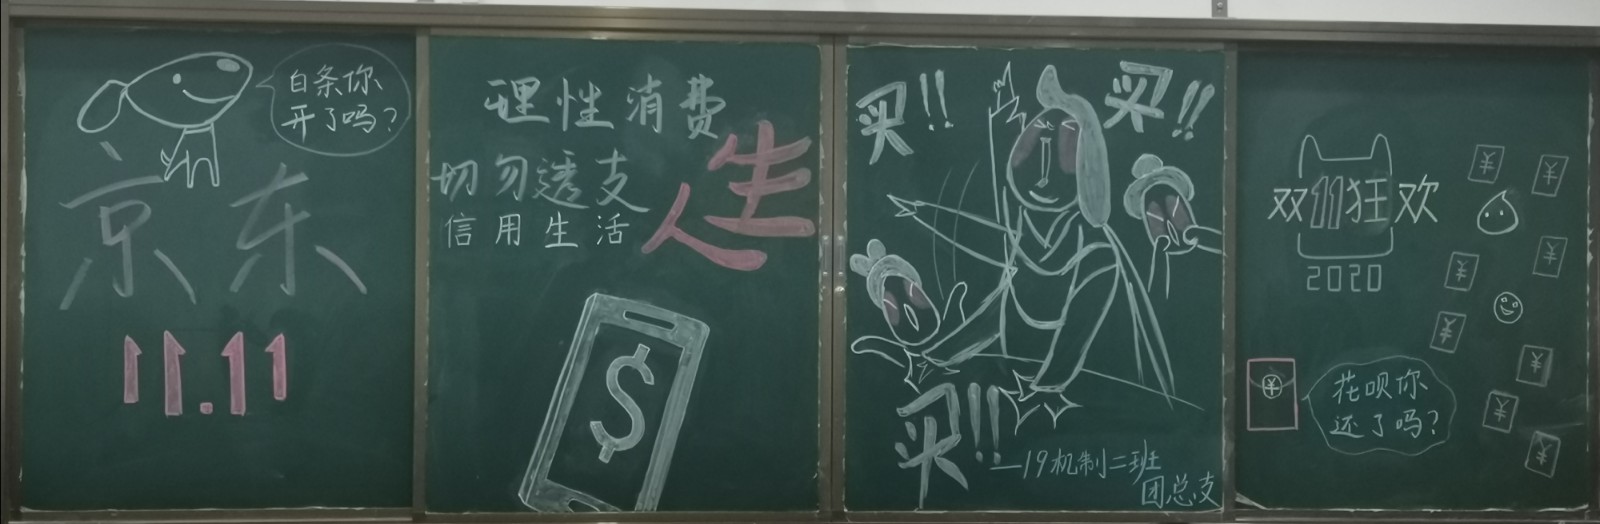 白条你
开了吗?
京东
11.11
理性消费
切勿透支
信用生活
人生
$
买!!
买!!
买!!
—19机制二班
团总支
双11狂欢
2020
¥
¥
¥
¥
¥
¥
¥
¥
¥
花呗你
还了吗?